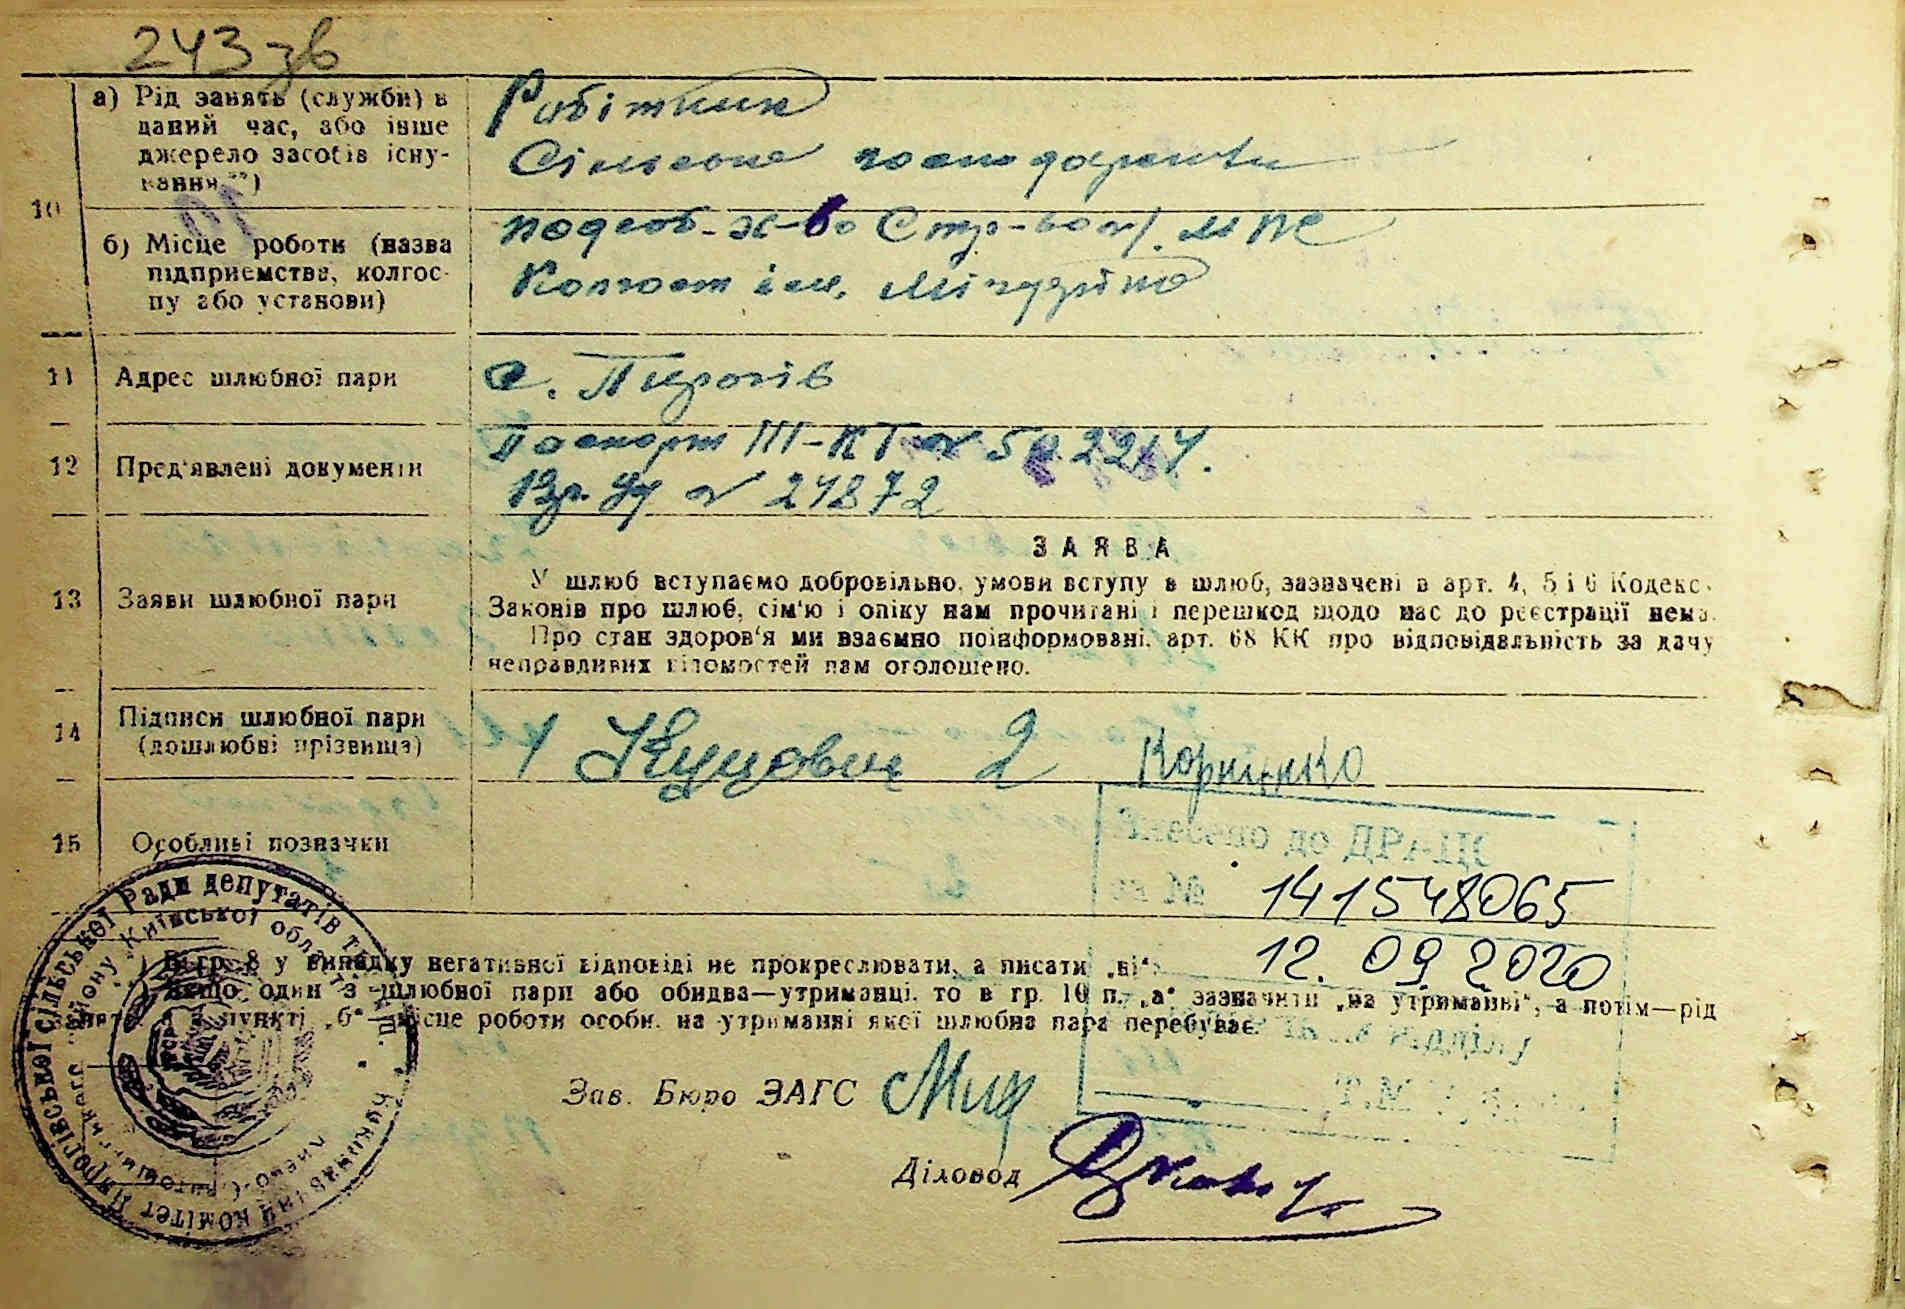 243 зв
10
а) Рід занять (служби) в
даний час, або інше
джерело засобів існу-
вання **)
Робітник
Сільське господарство
б) Місце роботи (назва
підприємства, колгос-
пу або установи)
подсоб. х-во МПС
Колгосп ім. Мічуріна
11 Адрес шлюбної пари
с. Пирогів
12 Пред'явлені документи
Паспорт III-КГ №
№ 24872
13 Заяви шлюбної пари
ЗАЯВА
У шлюб вступаємо добровільно, умови вступу в шлюб, зазначені в арт. 4, 5 і 6 Кодекс
Законів про шлюб, сім'ю і опіку нам прочитані і перешкод щодо нас до реєстрації нема.
Про стан здоров'я ми взаємно поінформовані, арт. 68 КК про відповідальність за дачу
неправдивих відомостей нам оголошено.
14 Підписи шлюбної пари
(дошлюбні прізвища)
1 2 Корниенко
15 Особливі позначки
Внесено до ДРАЦС
за № 141548065
12.09.2020
відділу
Т.М.
*) В гр. 8 у випадку негативної відповіді не прокреслювати, а писати „ні“.
**) Якщо один з шлюбної пари або обидва—утриманці, то в гр. 10 п. „а“ зазначити „на утриманні“, а потім—рід
занять, а в пункті „б“ місце роботи особи, на утриманні якої шлюбна пара перебуває.
Зав. Бюро ЗАГС
Діловод
Виконавчий комітет Пирогівської сільської Ради депутатів трудящ.
Києво-Святошинського району Київської області